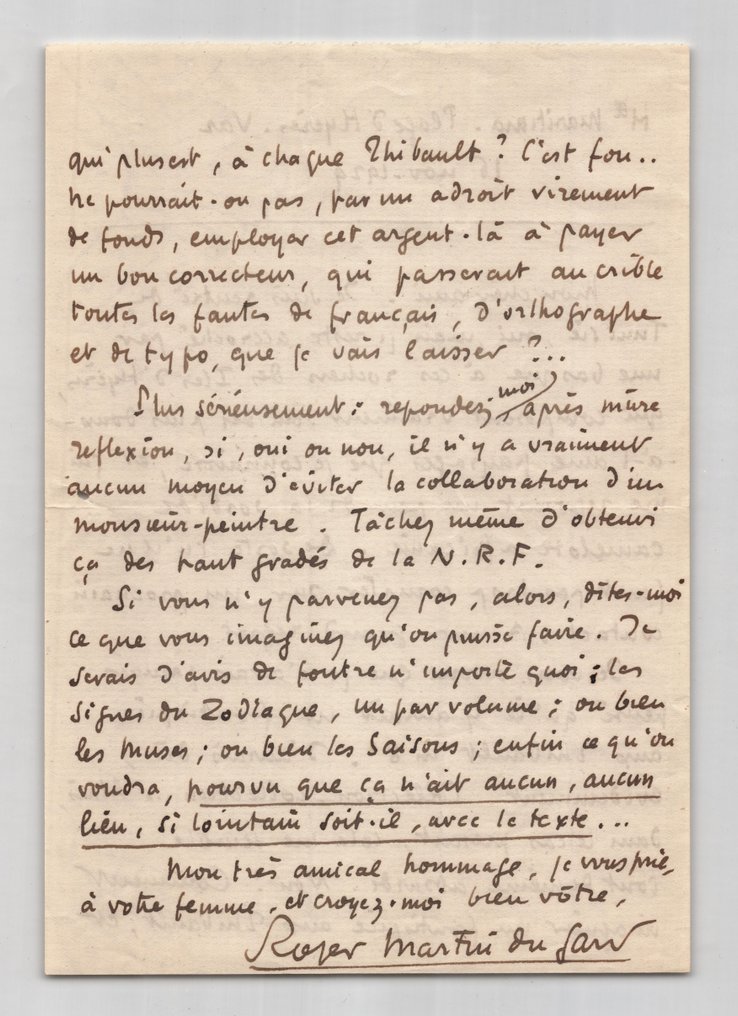 qui plus est, à chaque Thibault ? C'est fou..
Ne pourrait-on pas, par un adroit virement
de fonds, employer cet argent-là à payer
un bon correcteur, qui passerait au crible
toutes les fautes de français, d'orthographe
et de typo, que je vais laisser ?...
Plus sérieusement : repondez-moi, après mûre
reflexion, si, oui ou non, il n'y a vraiment
aucun moyen d'éviter la collaboration d'un
monsieur-peintre. Tâchez même d'obtenir
ça des haut gradés de la N.R.F.
Si vous n'y parvenez pas, alors, dîtes-moi
ce que vous imaginez qu'on puisse faire. Je
serais d'avis de foutre n'importe quoi ; les
signes du Zodiaque, un par volume ; ou bien
les Muses ; ou bien les Saisons ; enfin ce qu'on
voudra, pourvu que ça n'ait aucun, aucun
lien, si lointain soit-il, avec le texte...
Mon très amical hommage, je vous prie,
à votre femme, et croyez-moi bien vôtre,
Roger Martin du Gard